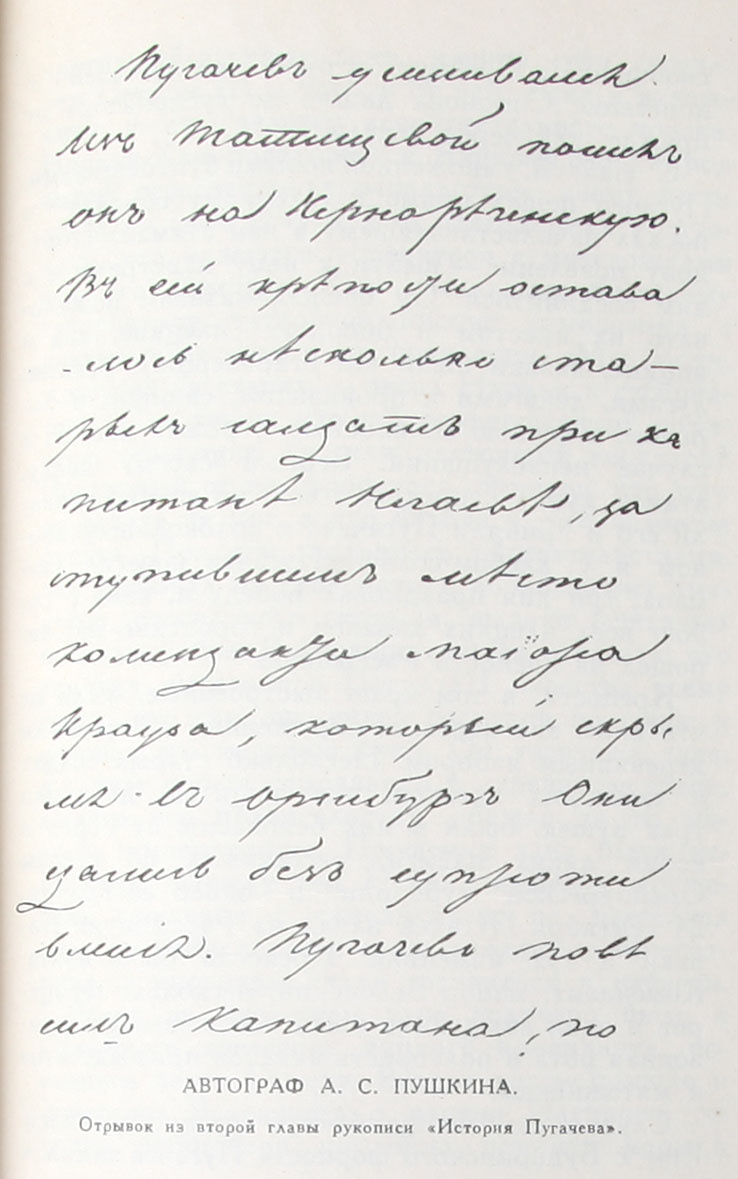 Пугачевъ усиливался.
Изъ Татищевой пошелъ
онъ на Чернорѣченскую.
Въ сей крѣпости остава
-лось нѣсколько ста-
рыхъ солдатъ при ка
питанѣ Нечаевѣ, за
ступившемъ мѣсто
коменданта маіора
Краузе, который скры
лся въ Оренбургъ Они
сдались безъ супроти
вленія. Пугачевъ повѣ
силъ капитана, по
АВТОГРАФ А. С. ПУШКИНА.
Отрывок из второй главы рукописи «История Пугачева».